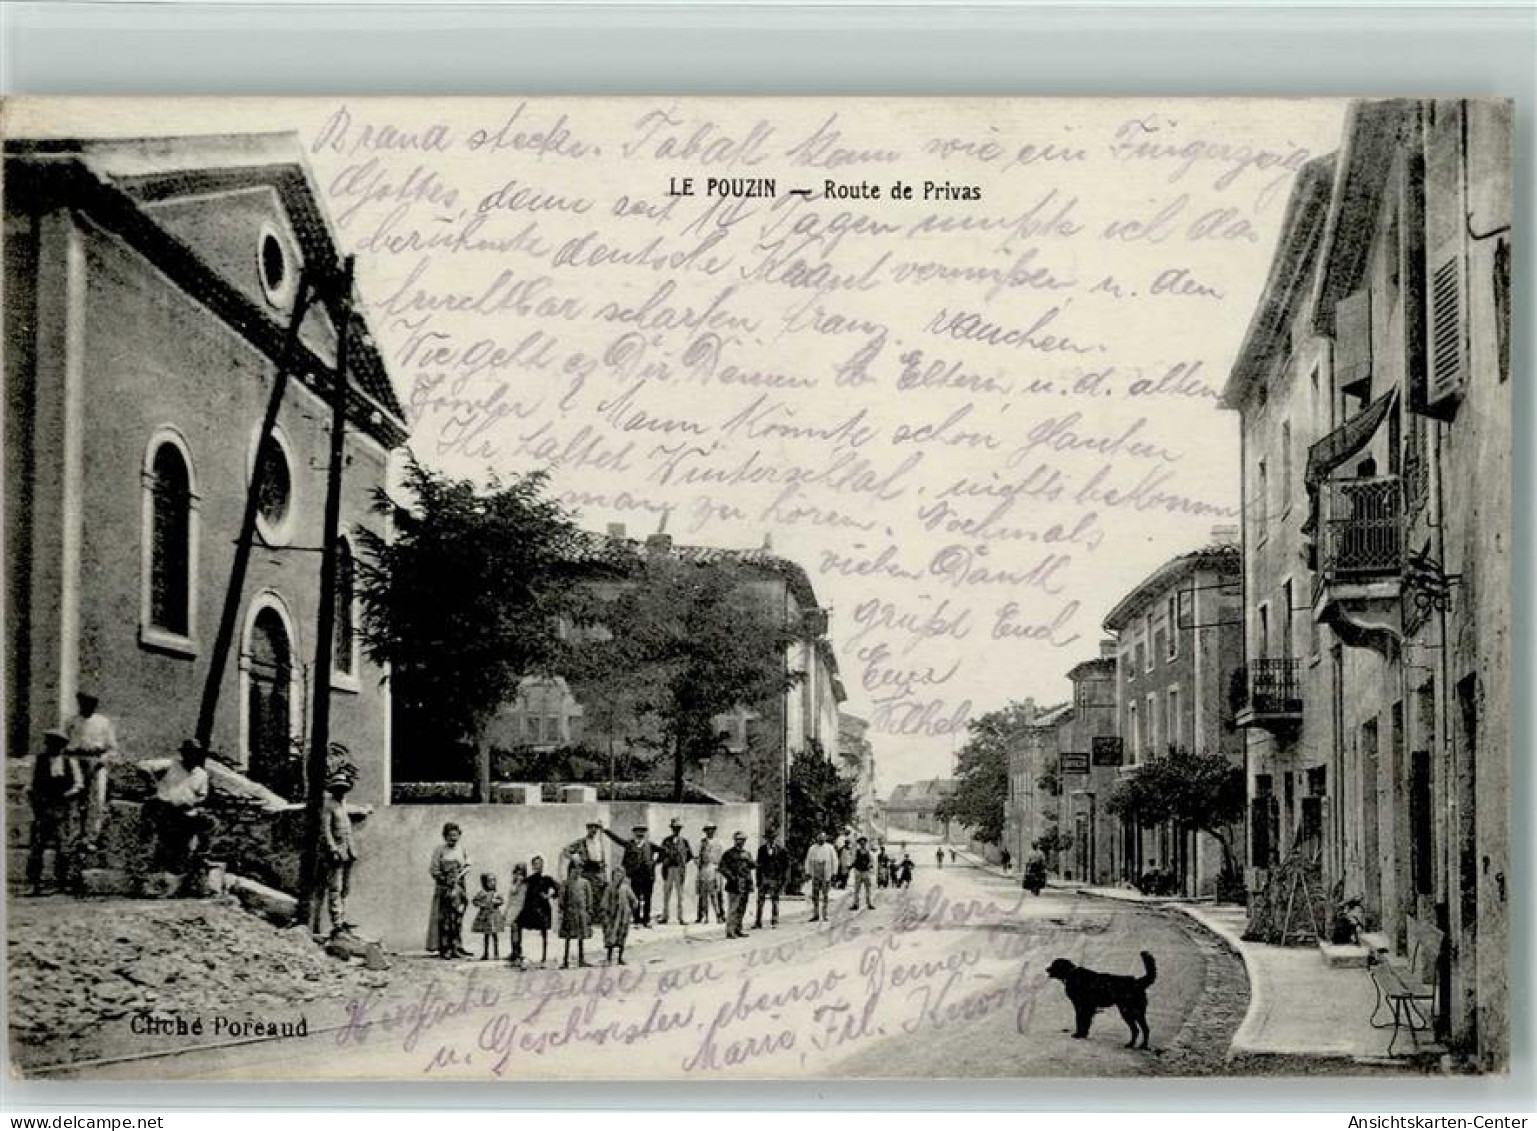 Brand stecke. Tabak kam wie ein Fingerzeig
LE POUZIN — Route de Privas
Gottes, denn seit 14 Tagen mußte ich das
berühmte deutsche Kraut vermißen u. den
furchtbar scharfen franz. rauchen.
Wie geht es Dir, Deinen lb Eltern, u. d. alten
? Mann könnte schon glauben
Ihr haltet Winterschlaf, nichts bekommt
man zu hören. Nochmals
vielen Dank
grüßt Euch
Euer
Herzliche Grüße an m. lb. Eltern
u. Geschwister, ebenso Deiner
Marie, Frl.
Cliché Poreaud
delcampe.net
Ansichtskarten-Center